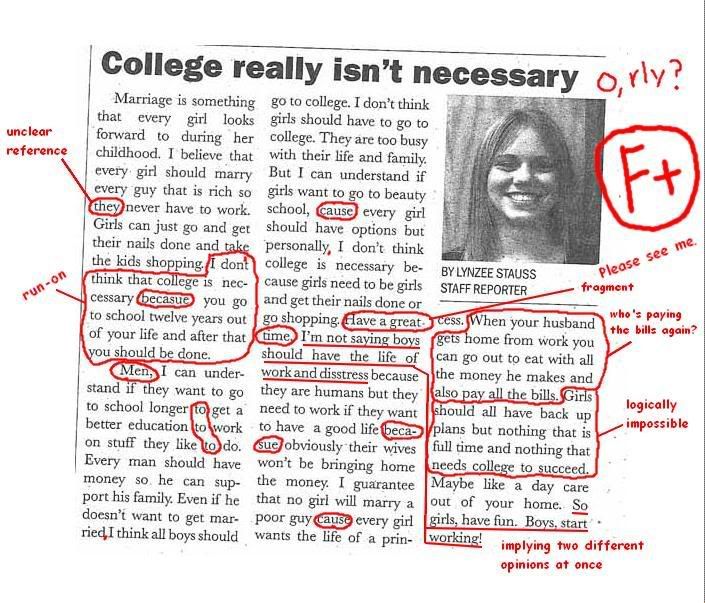 College really isn't necessary
o, rly?
F+
Please see me.
Marriage is something
that every girl looks
forward to during her
childhood. I believe that
every girl should marry
every guy that is rich so
they never have to work.
Girls can just go and get
their nails done and take
the kids shopping. I dont
think that college is nec-
cessary becasue you go
to school twelve years out
of your life and after that
you should be done.
Men, I can under-
stand if they want to go
to school longer to get a
better education to work
on stuff they like to do.
Every man should have
money so he can sup-
port his family. Even if he
doesn't want to get mar-
ried, I think all boys should
go to college. I don't think
girls should have to go to
college. They are too busy
with their life and family.
But I can understand if
girls want to go to beauty
school, cause every girl
should have options but
personally, I don't think
college is necessary be-
cause girls need to be girls
and get their nails done or
go shopping. Have a great
time. I'm not saying boys
should have the life of
work and disstress because
they are humans but they
need to work if they want
to have a good life beca-
sue obviously their wives
won't be bringing home
the money. I guarantee
that no girl will marry a
poor guy cause every girl
wants the life of a prin-
BY LYNZEE STAUSS
STAFF REPORTER
cess. When your husband
gets home from work you
can go out to eat with all
the money he makes and
also pay all the bills. Girls
should all have back up
plans but nothing that is
full time and nothing that
needs college to succeed.
Maybe like a day care
out of your home. So
girls, have fun. Boys, start
working!
unclear
reference
run-on
fragment
who's paying
the bills again?
logically
impossible
implying two different
opinions at once